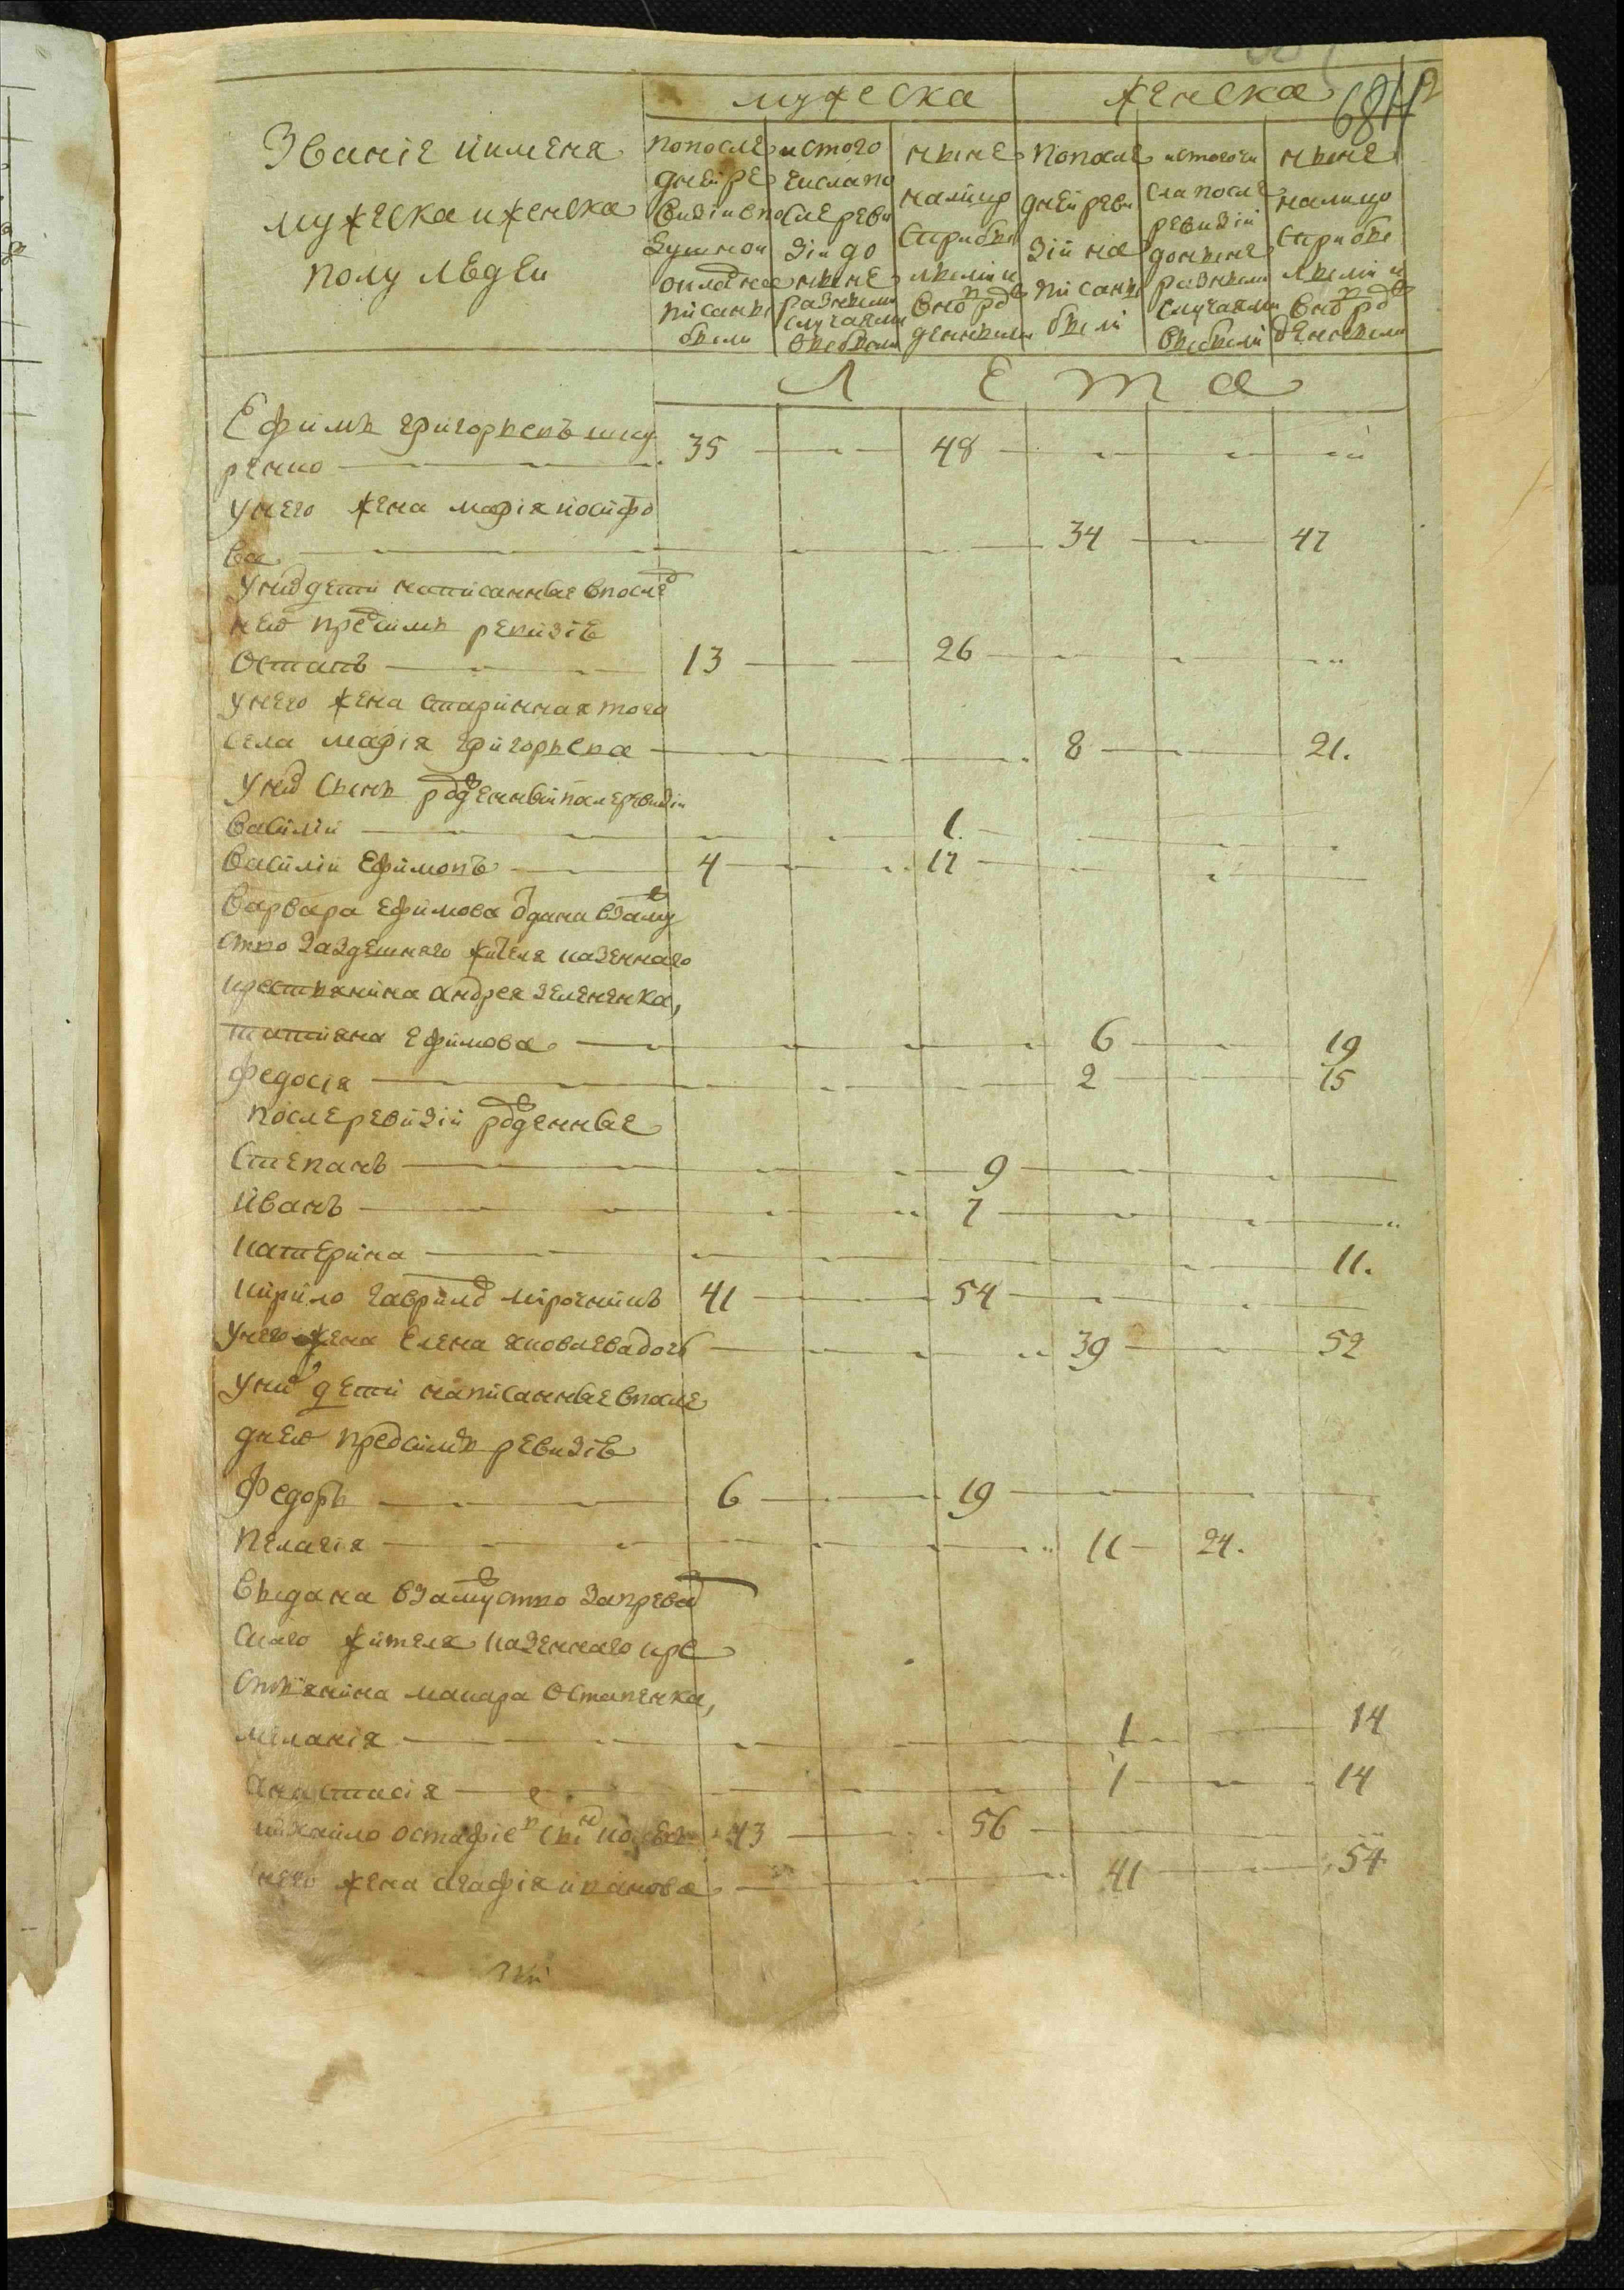 мужеска женска
684
Званіе иимена
мужеска иженска
полу людеи
попосле
днеи ре
визіи впо
душнои
окладнае
писаны
были
истого
числапо
слереви
зіи до
ныне
разными
случаями
выбыли
ныне
налицо
сприбы
лыми и
вновь рож
денными
попосле
днеи реви
зіи на
писаны
были
истогочи
сла после
ревизіи
доныне
разными
случаями
выбыли
ныне
налицо
сприбы
лыми и
вновь рож
денными
Л е т а
Ефимъ григорьевъ
ренко 35 48
унего жена марія иосифо
ва 34 47
унихдети написанные впосле
нею пред симъ ревизіею
Остапъ 13 26
унего жена стариннаятого
села марія григорьева 8 21.
унихъ сынъ рожденныйпослеревизіи
василіи 1.
василіи ефимовъ 4 17
варвара ефимова одана взаму
ство заздешняго жителя казеннаго
крестьянина андрея зеленка,
татияна ефимова 6 19
федосія 2 15
послеревизіи рожденные
Степанъ 9
иванъ 7
катерина 11.
кирило гаврилов мірочникъ 41 54
унего жена елена яковлевадочь 39 52
унихъ дети написанные впосле
днею предсимъ ревизіею
федоръ 6 19
пелагія 11 24.
выдана взамуство
скаго жителя казеннаго кре
стьянина макара остапенка,
меланія 1 14
анастасія 1 14
михаило остафіевъ сынъ 43 56
него жена агафія иванова 41 54